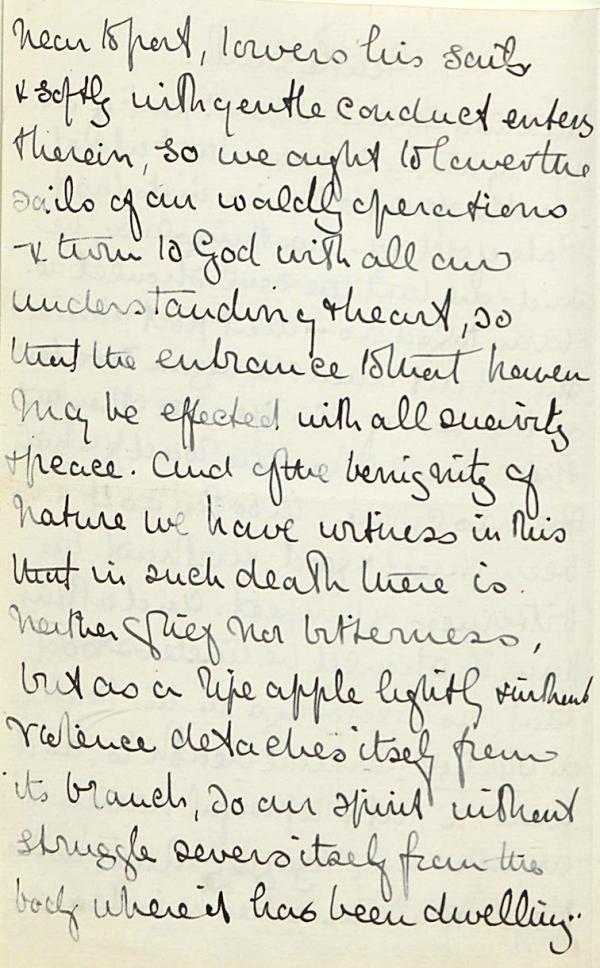 near to port, lowers his sails
& softly with gentle conduct enters
therein, so we ought to lower the
sails of our worldly operations
& turn to God with all our
understanding & heart, so
that the entrance to that haven
may be effected with all suavity
& peace. And of the benignity of
nature we have witness in this
that in such death there is
neither grief nor bitterness,
but as a ripe apple lightly & without
violence detaches itself from
its branch, so our spirit without
struggle severs itself from the
body where it has been dwelling..